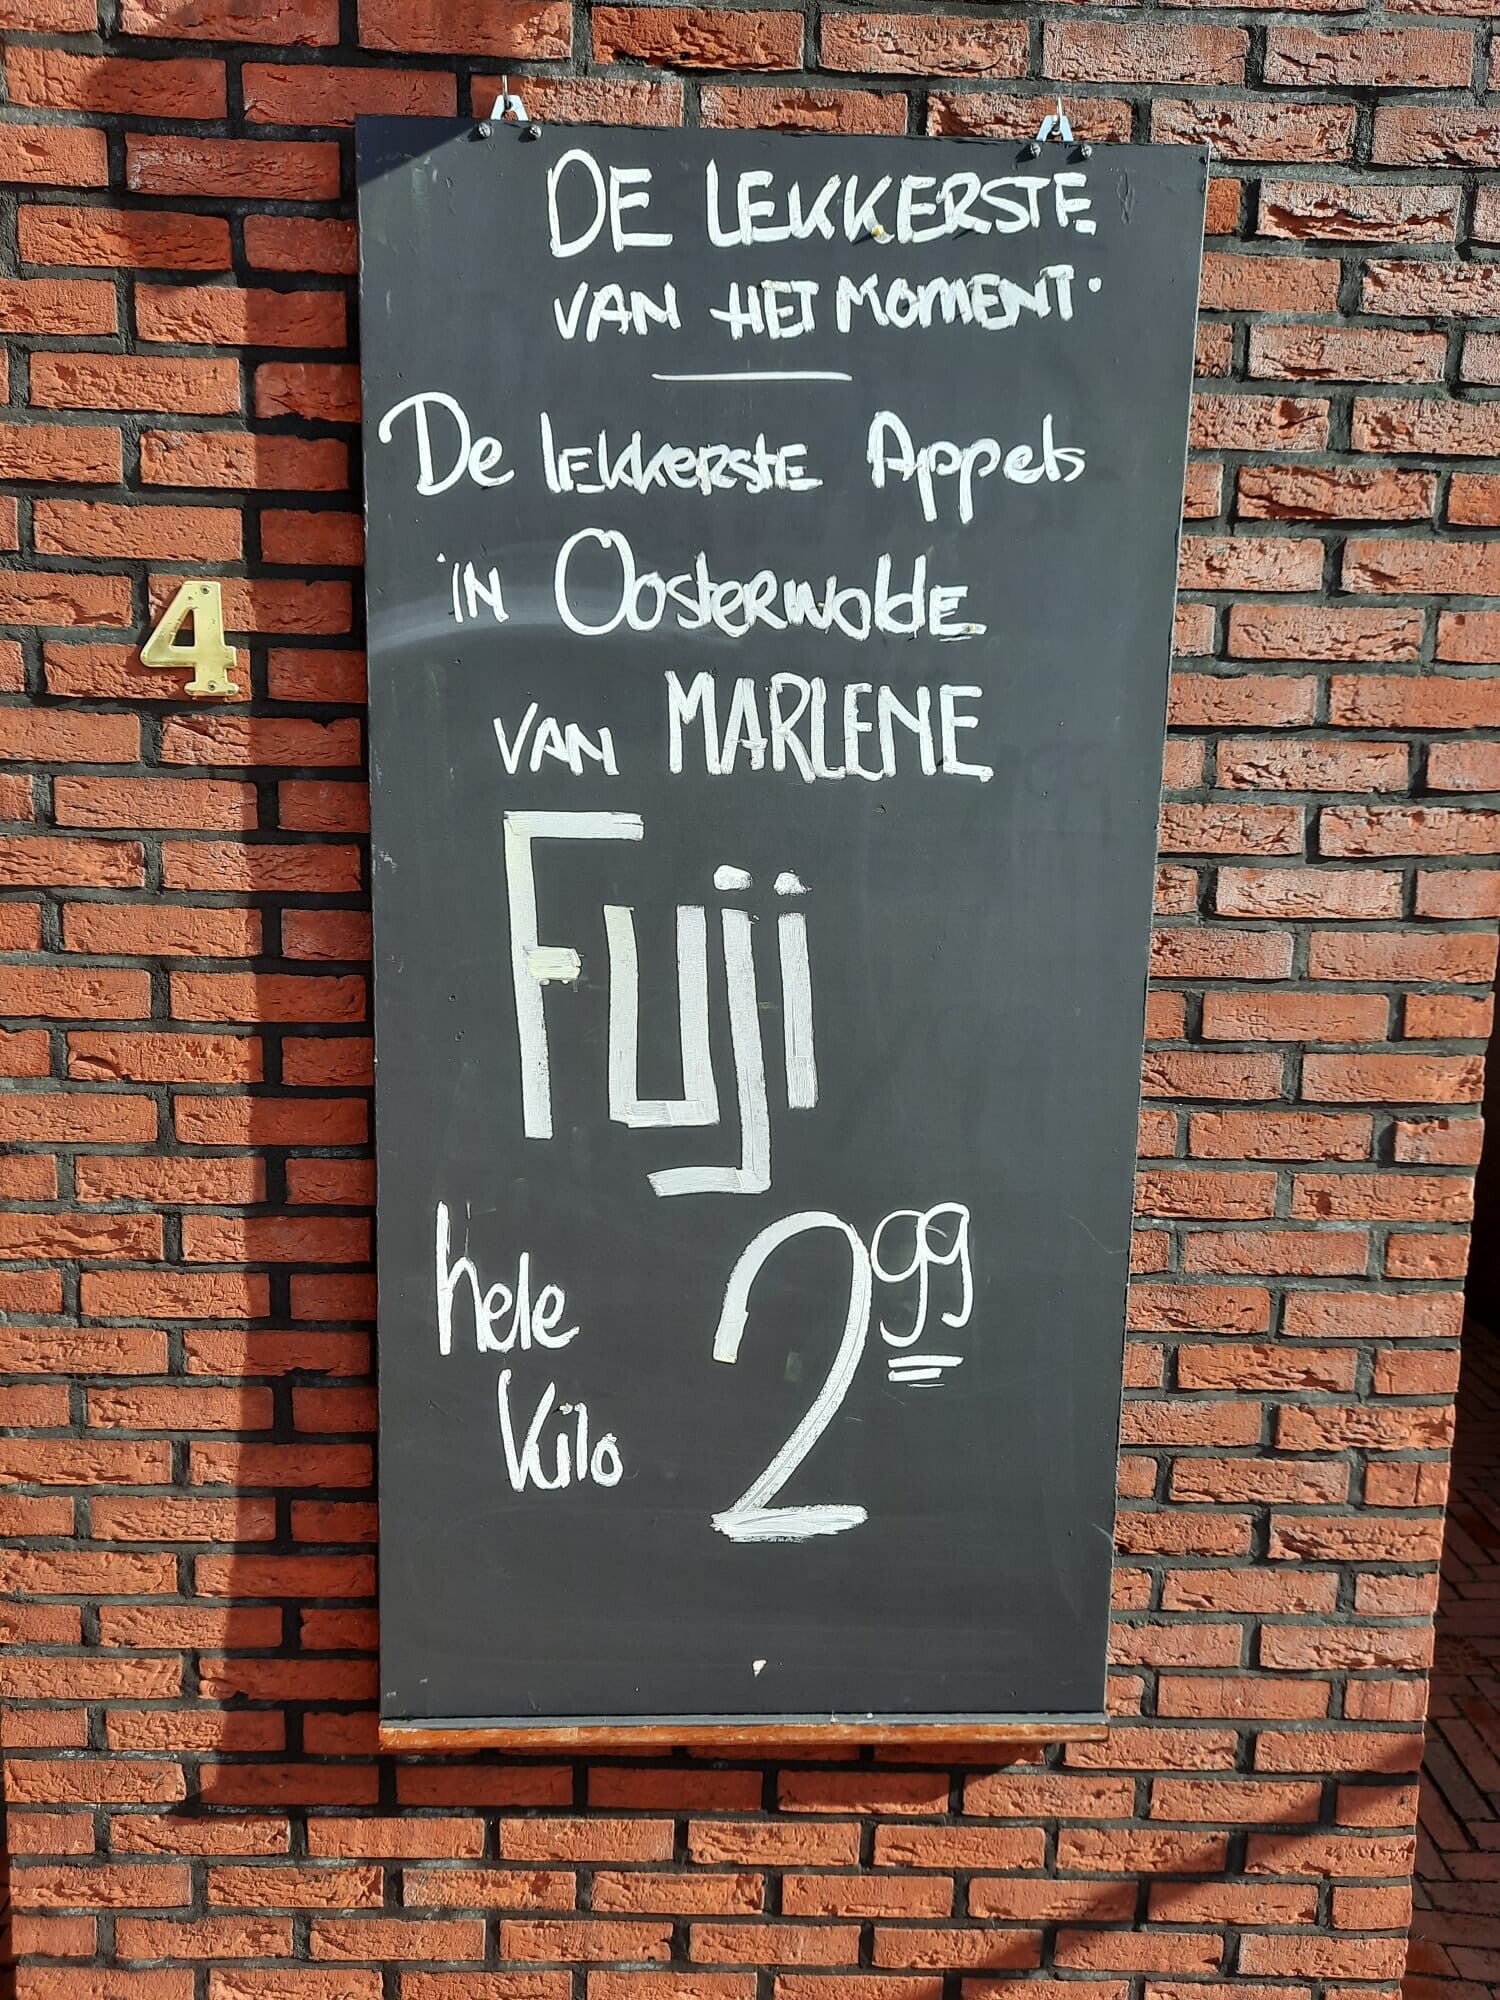 DE LEKKERSTE
VAN HET MOMENT.
De lekkerste Appels
4
in Oosterwolde
van MARLENE
Fuji
hele 2 99
Kilo